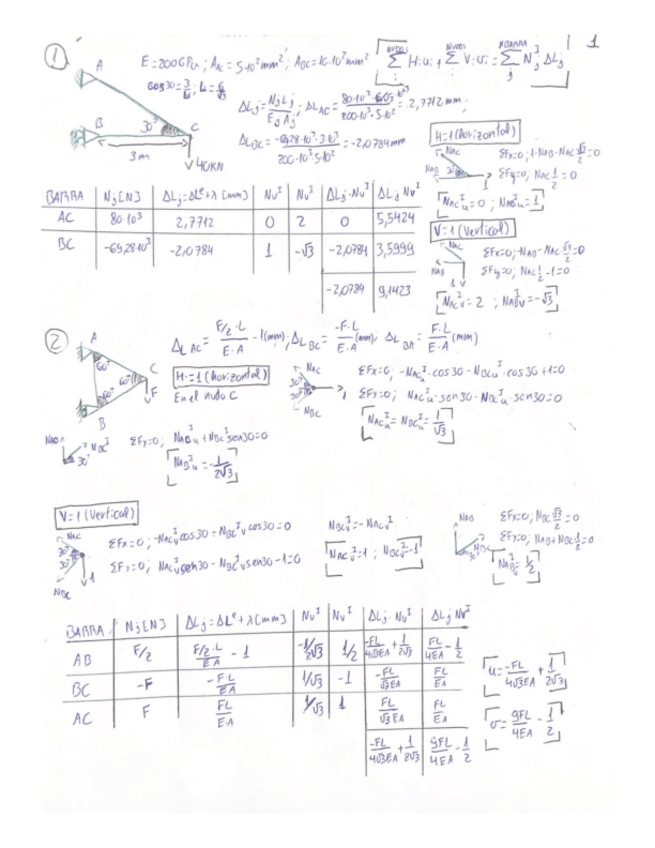 1
① E=200GPa; A_AC = 5·10² mm²; A_BC=10·10² mm² [Σ H·u_i + Σ V·v_i = Σ N_j^I ΔL_j]
NUDOS NUDOS NBARRA
i i j
A
B
C
30°
3m
40KN
cos30=3/L; L=6/√3
ΔL_j = N_j L_j / E_j A_j; ΔL_AC = 80·10³·6/√3·10³ / 200·10³·5·10² = 2,7712 mm;
ΔL_BC = -69,28·10³·3·10³ / 200·10³·5·10² = -2,0784mm
H=1 (horizontal)
N_AC N_AB 30° 1
ΣFx=0; 1-N_AB-N_AC √3/2=0
ΣFy=0; N_AC 1/2 = 0
[N_AC^I_u=0; N_AB^I_u=1]
V=1 (Vertical)
N_AC N_AB 1
ΣFx=0; -N_AB-N_AC √3/2=0
ΣFy=0; N_AC 1/2 -1=0
[N_AC^I_v=2; N_AB^I_v=-√3]
BARRA | N_j[N] | ΔL_j=ΔL^e+λ [mm] | Nu^I | Nv^I | ΔL_j·Nu^I | ΔL_j Nv^I
AC | 80·10³ | 2,7712 | 0 | 2 | 0 | 5,5424
BC | -69,28·10³ | -2,0784 | 1 | -√3 | -2,0784 | 3,5999
-2,0784 | 9,1423
②
A
B
C
60°
60°
60°
F
ΔL_AC = F/2·L / E·A - 1(mm); ΔL_BC = -F·L / E·A (mm); ΔL_BA = F·L / E·A (mm)
H=1 (horizontal)
En el nudo C
N_AC 30° 30° N_BC 1
ΣFx=0; -N_AC^I_u·cos30-N_BC^I_u·cos30+1=0
ΣFy=0; N_AC^I_u·sen30-N_BC^I_u·sen30=0
[N_AC^I_u=N_BC^I_u=1/√3]
N_AB N_BC^I 30°
ΣFy=0; N_AB^I_u+N_BC^I_u sen30=0
[N_AB^I_u=-1/2√3]
V=1 (Vertical)
N_AC 30° 30° N_BC 1
ΣFx=0; -N_AC^I_v cos30-N_BC^I_v cos30=0
ΣFy=0; N_AC^I_v sen30-N_BC^I_v sen30-1=0
N_BC^I_v=-N_AC^I_v
[N_AC^I_v=1; N_BC^I_v=-1]
N_AB N_BC 30°
ΣFx=0; N_BC √3/2=0
ΣFy=0; N_AB+N_BC 1/2=0
[N_AB^I_v=1/2]
BARRA | N_j[N] | ΔL_j=ΔL^e+λ[mm] | Nu^I | Nv^I | ΔL_j·Nu^I | ΔL_j Nv^I
AB | F/2 | F/2·L / EA - 1 | -1/2√3 | 1/2 | -FL/4√3EA + 1/2√3 | FL/4EA - 1/2
BC | -F | -F·L/EA | 1/√3 | -1 | -FL/√3EA | FL/EA
AC | F | FL/EA | 1/√3 | 1 | FL/√3EA | FL/EA
-FL/4√3EA + 1/2√3 | 9FL/4EA - 1/2
[u=-FL/4√3EA + 1/2√3]
[v=9FL/4EA - 1/2]